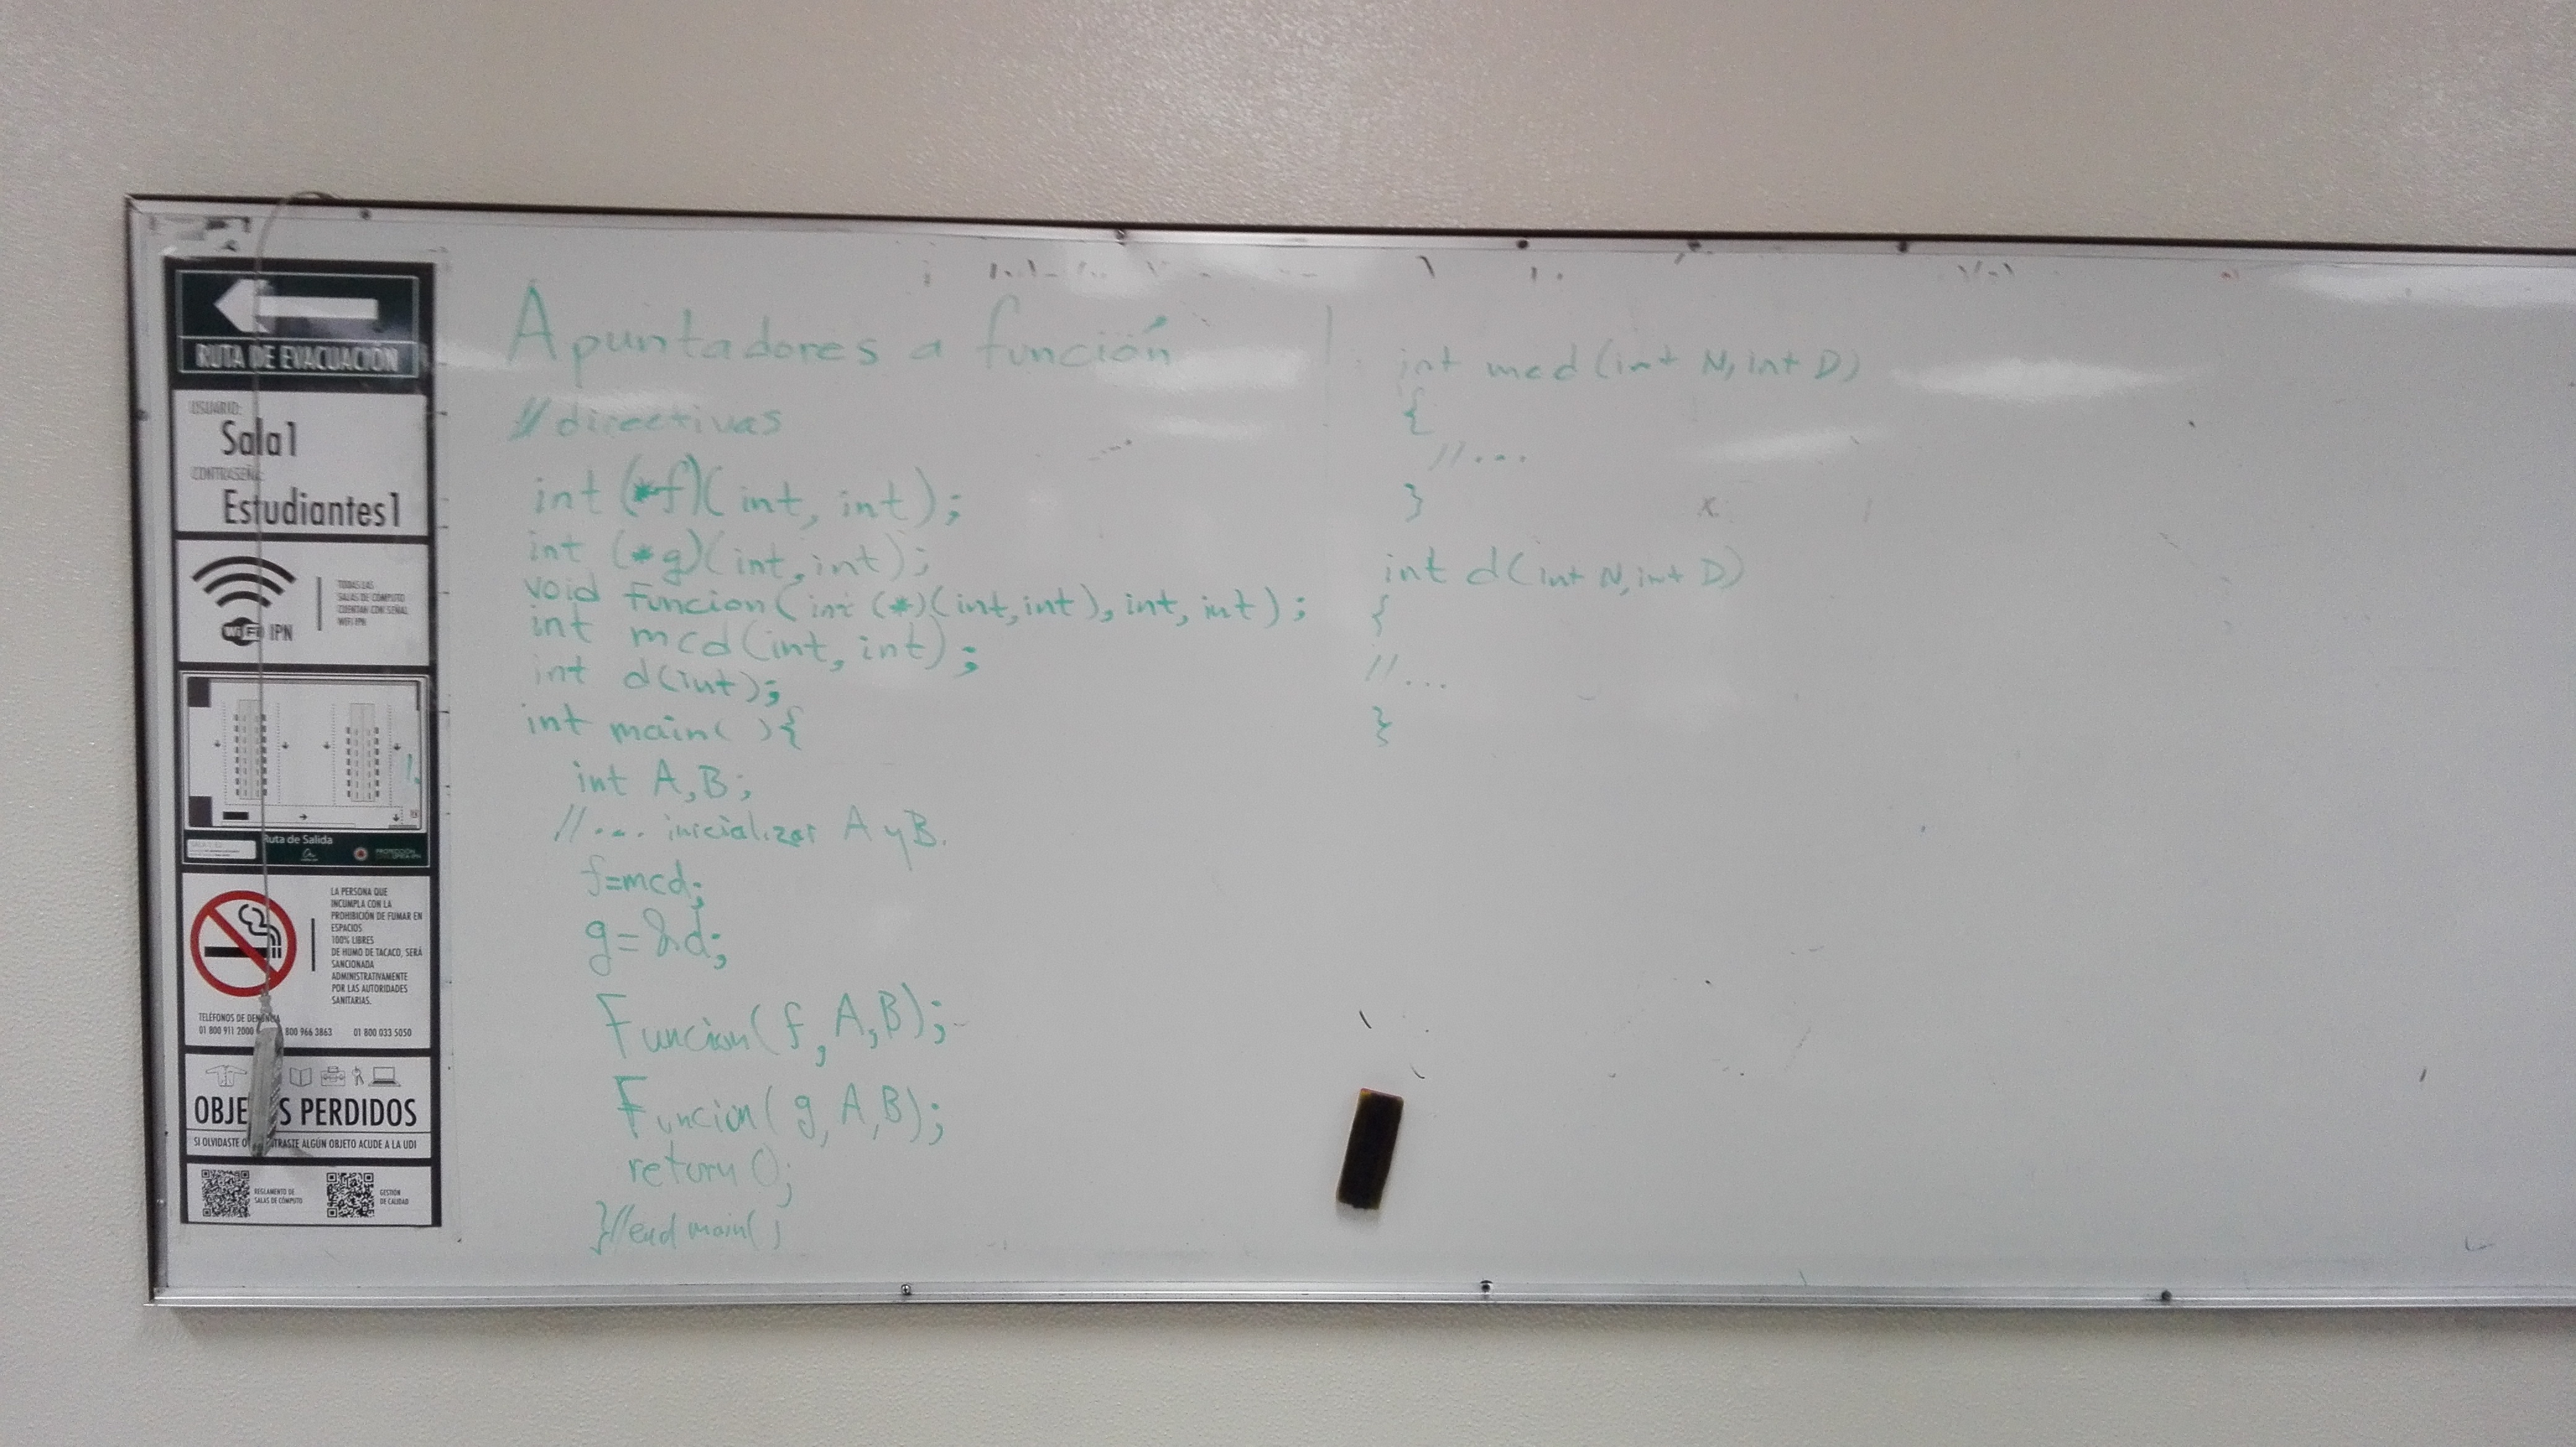 RUTA DE EVACUACIÓN
USUARIO:
Sala1
CONTRASEÑA:
Estudiantes1
WiFi IPN
TODAS LAS
SALAS DE CÓMPUTO
CUENTAN CON SEÑAL
WIFI IPN
Ruta de Salida
LA PERSONA QUE
INCUMPLA CON LA
PROHIBICIÓN DE FUMAR EN
ESPACIOS
100% LIBRES
DE HUMO DE TACACO, SERÁ
SANCIONADA
ADMINISTRATIVAMENTE
POR LAS AUTORIDADES
SANITARIAS.
TELÉFONOS DE DENUNCIA
01 800 911 2000 800 966 3863 01 800 033 5050
OBJETOS PERDIDOS
SI OLVIDASTE O ENCONTRASTE ALGÚN OBJETO ACUDE A LA UDI
REGLAMENTO DE
SALAS DE CÓMPUTO
GESTIÓN
DE CALIDAD
Apuntadores a función
//directivas
int (*f)(int, int);
int (*g)(int, int);
void funcion(int (*)(int, int), int, int);
int mcd(int, int);
int d(int);
int main( ){
int A, B;
//... inicializar A y B.
f=mcd;
g=&d;
Funcion(f, A, B);
Funcion(g, A, B);
return 0;
}//end main( )
int mcd (int N, int D)
{
//...
}
int d(int N, int D)
{
//...
}